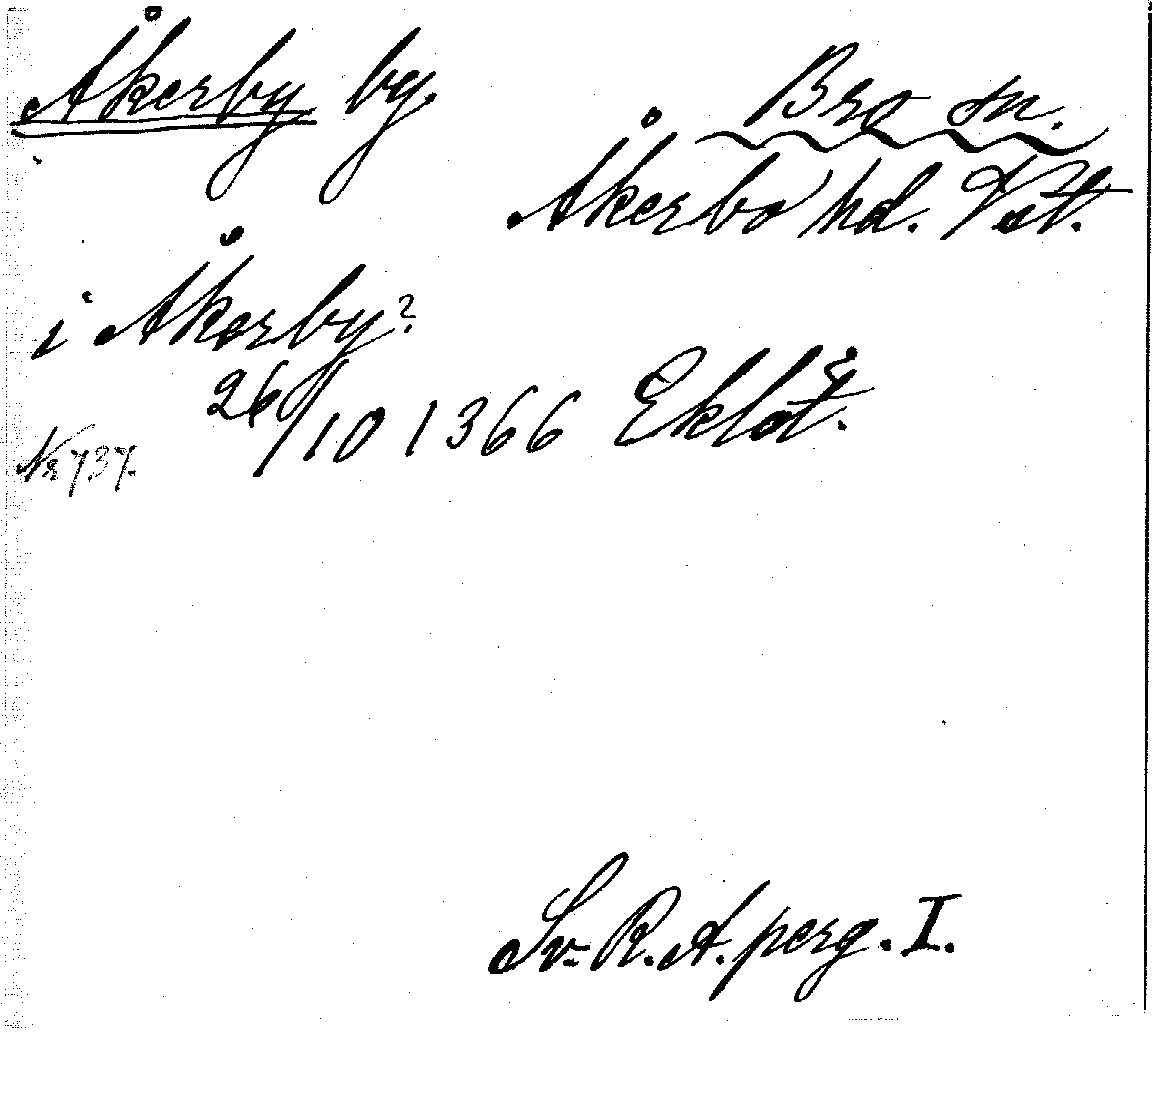 Åkerby by.
Bro sn.
Åkerbo hd. Vstm.
i Åkerby?
26/10 1366 Eklöt.
No 737.
Sv. R. A. perg. I.